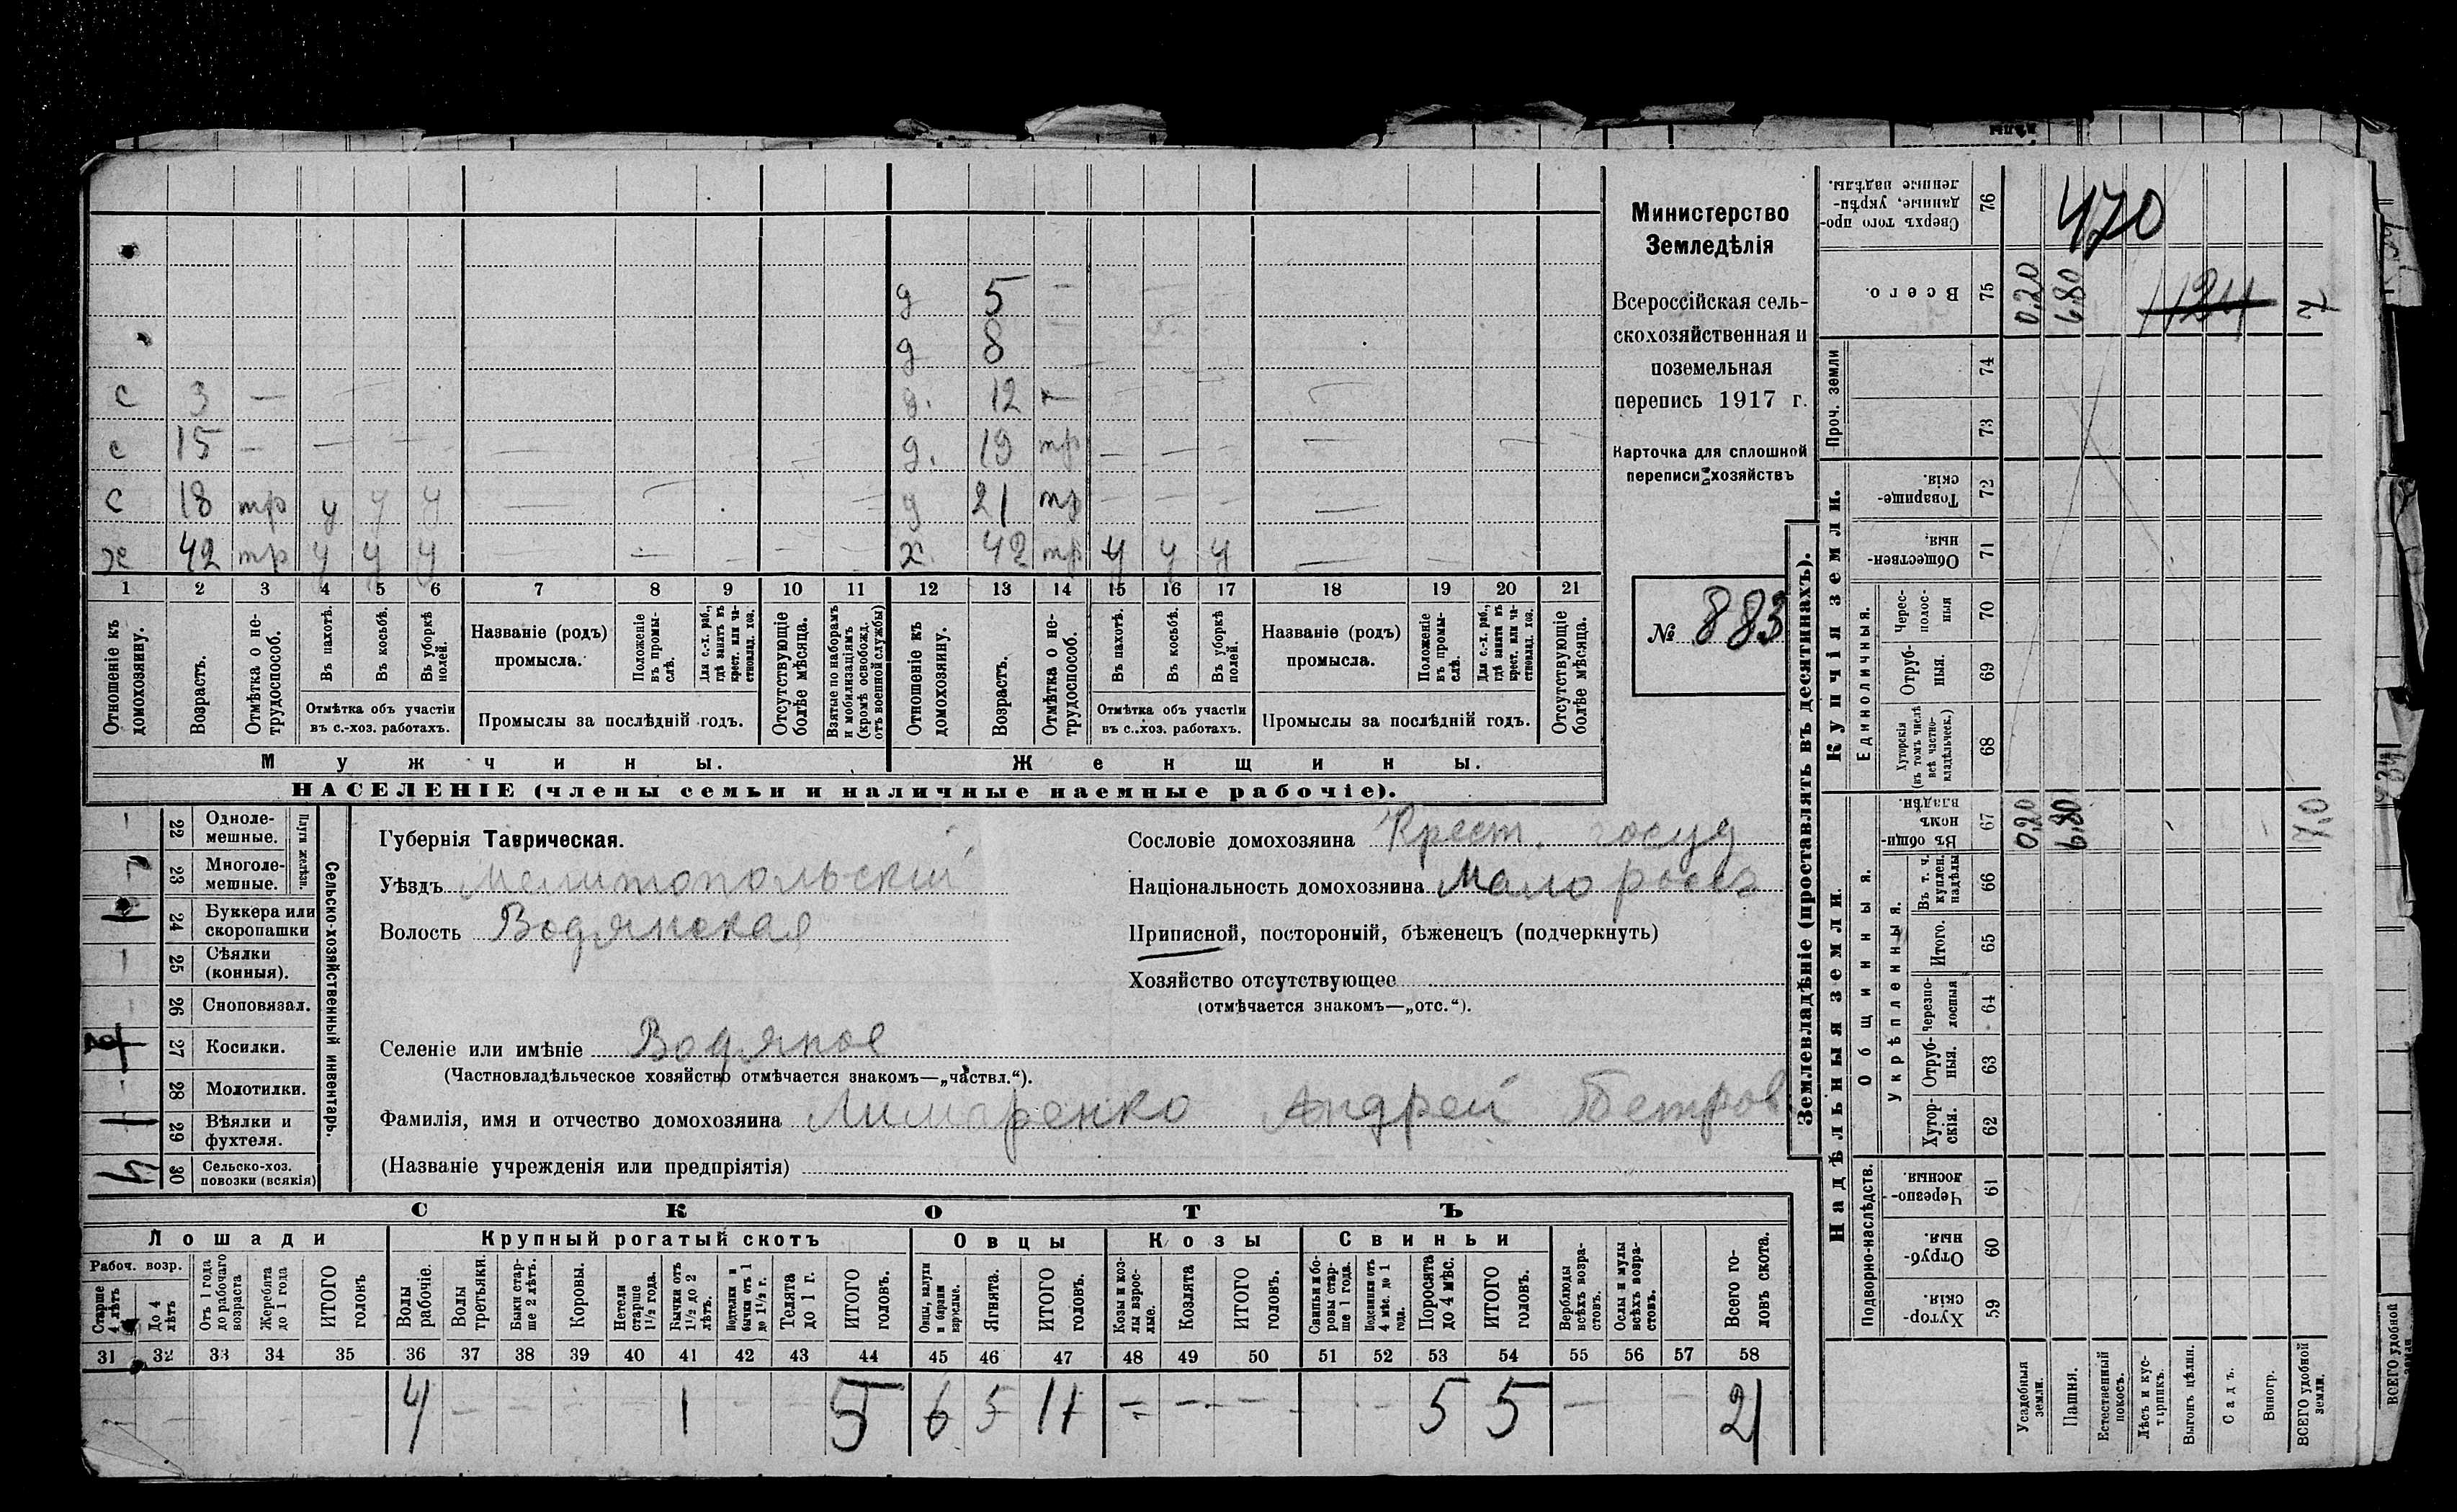 Министерство
Земледѣлія
Всероссійская сель-
скохозяйственная и
поземельная
перепись 1917 г.
Карточка для сплошной
переписи хозяйствъ
№ 883
д 5 —
д 8
с 3 — д. 12 —
с 15 — д. 19 тр
с 18 тр у у у д 21 тр
х 42 тр у у у х. 42 тр у у у
1 2 3 4 5 6 7 8 9 10 11 12 13 14 15 16 17 18 19 20 21
Отношеніе къ домохозяину.
Возрастъ.
Отмѣтка о не-трудоспособ.
Въ пахотѣ.
Въ косьбѣ.
Въ уборкѣ полей.
Отмѣтка объ участіи въ с.-хоз. работахъ.
Названіе (родъ) промысла.
Положеніе въ промы-слѣ.
Для с.-х. раб., гдѣ занятъ въ крест. или ча-стновлад. хоз.
Промыслы за послѣдній годъ.
Отсутствующіе болѣе мѣсяца.
Взятые по наборамъ и мобилизаціямъ (кромѣ освобожд. отъ военной службы)
Отношеніе къ домохозяину.
Возрастъ.
Отмѣтка о не-трудоспособ.
Въ пахотѣ.
Въ косьбѣ.
Въ уборкѣ полей.
Отмѣтка объ участіи въ с.-хоз. работахъ.
Названіе (родъ) промысла.
Положеніе въ промы-слѣ.
Для с.-х. раб., гдѣ занята въ крест. или ча-стновлад. хоз.
Промыслы за послѣдній годъ.
Отсутствующіе болѣе мѣсяца.
Мужчины. Женщины.
НАСЕЛЕНІЕ (члены семьи и наличные наемные рабочіе).
Сельско-хозяйственный инвентарь.
Плуги желѣзн.
22 Одноле-мешные.
23 Многоле-мешные.
24 Буккера или скоропашки
25 Сѣялки (конныя).
26 Сноповязал.
27 Косилки.
28 Молотилки.
1 29 Вѣялки и фухтеля.
30 Сельско-хоз. повозки (всякія)
Губернія Таврическая.
Уѣздъ Мелитопольскій
Волость Водянская
Селеніе или имѣніе Водяное
(Частновладѣльческое хозяйство отмѣчается знакомъ—„частвл.“).
Фамилія, имя и отчество домохозяина Лимаренко Андрей Петров
(Названіе учрежденія или предпріятія)
Сословіе домохозяина Крест. госуд
Національность домохозяина Малоросс
Приписной, посторонній, бѣженецъ (подчеркнуть)
Хозяйство отсутствующее
(отмѣчается знакомъ—„отс.“).
СКОТЪ
Лошади Крупный рогатый скотъ Овцы Козы Свиньи
Рабоч. возр.
Старше 4 лѣтъ
До 4 лѣтъ
Отъ 1 года до рабочаго возраста
Жеребята до 1 года
ИТОГО головъ
Волы рабочіе.
Волы третьяки.
Быки стар-ше 2 лѣтъ.
Коровы.
Нетели старше 1½ года.
Бычки отъ 1½ до 2 лѣтъ.
Подтелки и бычки отъ 1 до 1½ г.
Телята до 1 г.
ИТОГО головъ.
Овцы, валухи и бараны взрослые.
Ягнята.
ИТОГО головъ.
Козы и коз-лы взрос-лые.
Козлята
ИТОГО головъ.
Свиньи и бо-ровы стар-ше 1 года.
Подсвинки отъ 4 мѣс. до 1 года.
Поросята до 4 мѣс.
ИТОГО головъ.
Верблюды всѣхъ возра-стовъ.
Ослы и мулы всѣхъ возра-стовъ.
Всего го-ловъ скота.
31 32 33 34 35 36 37 38 39 40 41 42 43 44 45 46 47 48 49 50 51 52 53 54 55 56 57 58
4 — — — — 1 — — 5 6 5 11 — — — — 5 5 — — 21
Землевладѣніе (проставлять въ десятинахъ).
Надѣльныя земли. Купчія земли.
Проч. земли
Подворно-наслѣдств.
Общинныя.
Укрѣпленныя.
Единоличныя.
Сверхъ того про-данные, укрѣп-ленные надѣлы. 76
Всего. 75
74
73
Товарище-скія. 72
Обществен-ныя. 71
Черес-полос-ныя 70
Отруб-ныя. 69
Хуторскія (въ томъ числѣ всѣ частно-владѣльческ.) 68
Въ общин-номъ владѣн. 67
Въ т. ч. куплен. надѣлы 66
Итого. 65
Черезпо-лосныя 64
Отруб-ныя. 63
Хутор-скія. 62
Черезпо-лосныя 61
Отруб-ныя. 60
Хутор-скія. 59
470
0,20 6,80 1124 7
0,20 6,80 7,0
Усадебныя земли.
Пашня.
Естественный покосъ.
Лѣсъ и кус-тарникъ.
Выгонъ цѣлин.
Садъ.
Виногр.
ВСЕГО удобной земли.
ВСЕГО удобной